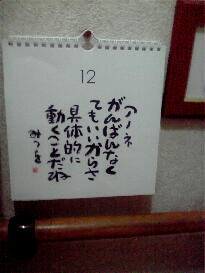 12
アノーネ
がんばんなく
てもいいからさ
具体的に
動くことだね
みつを